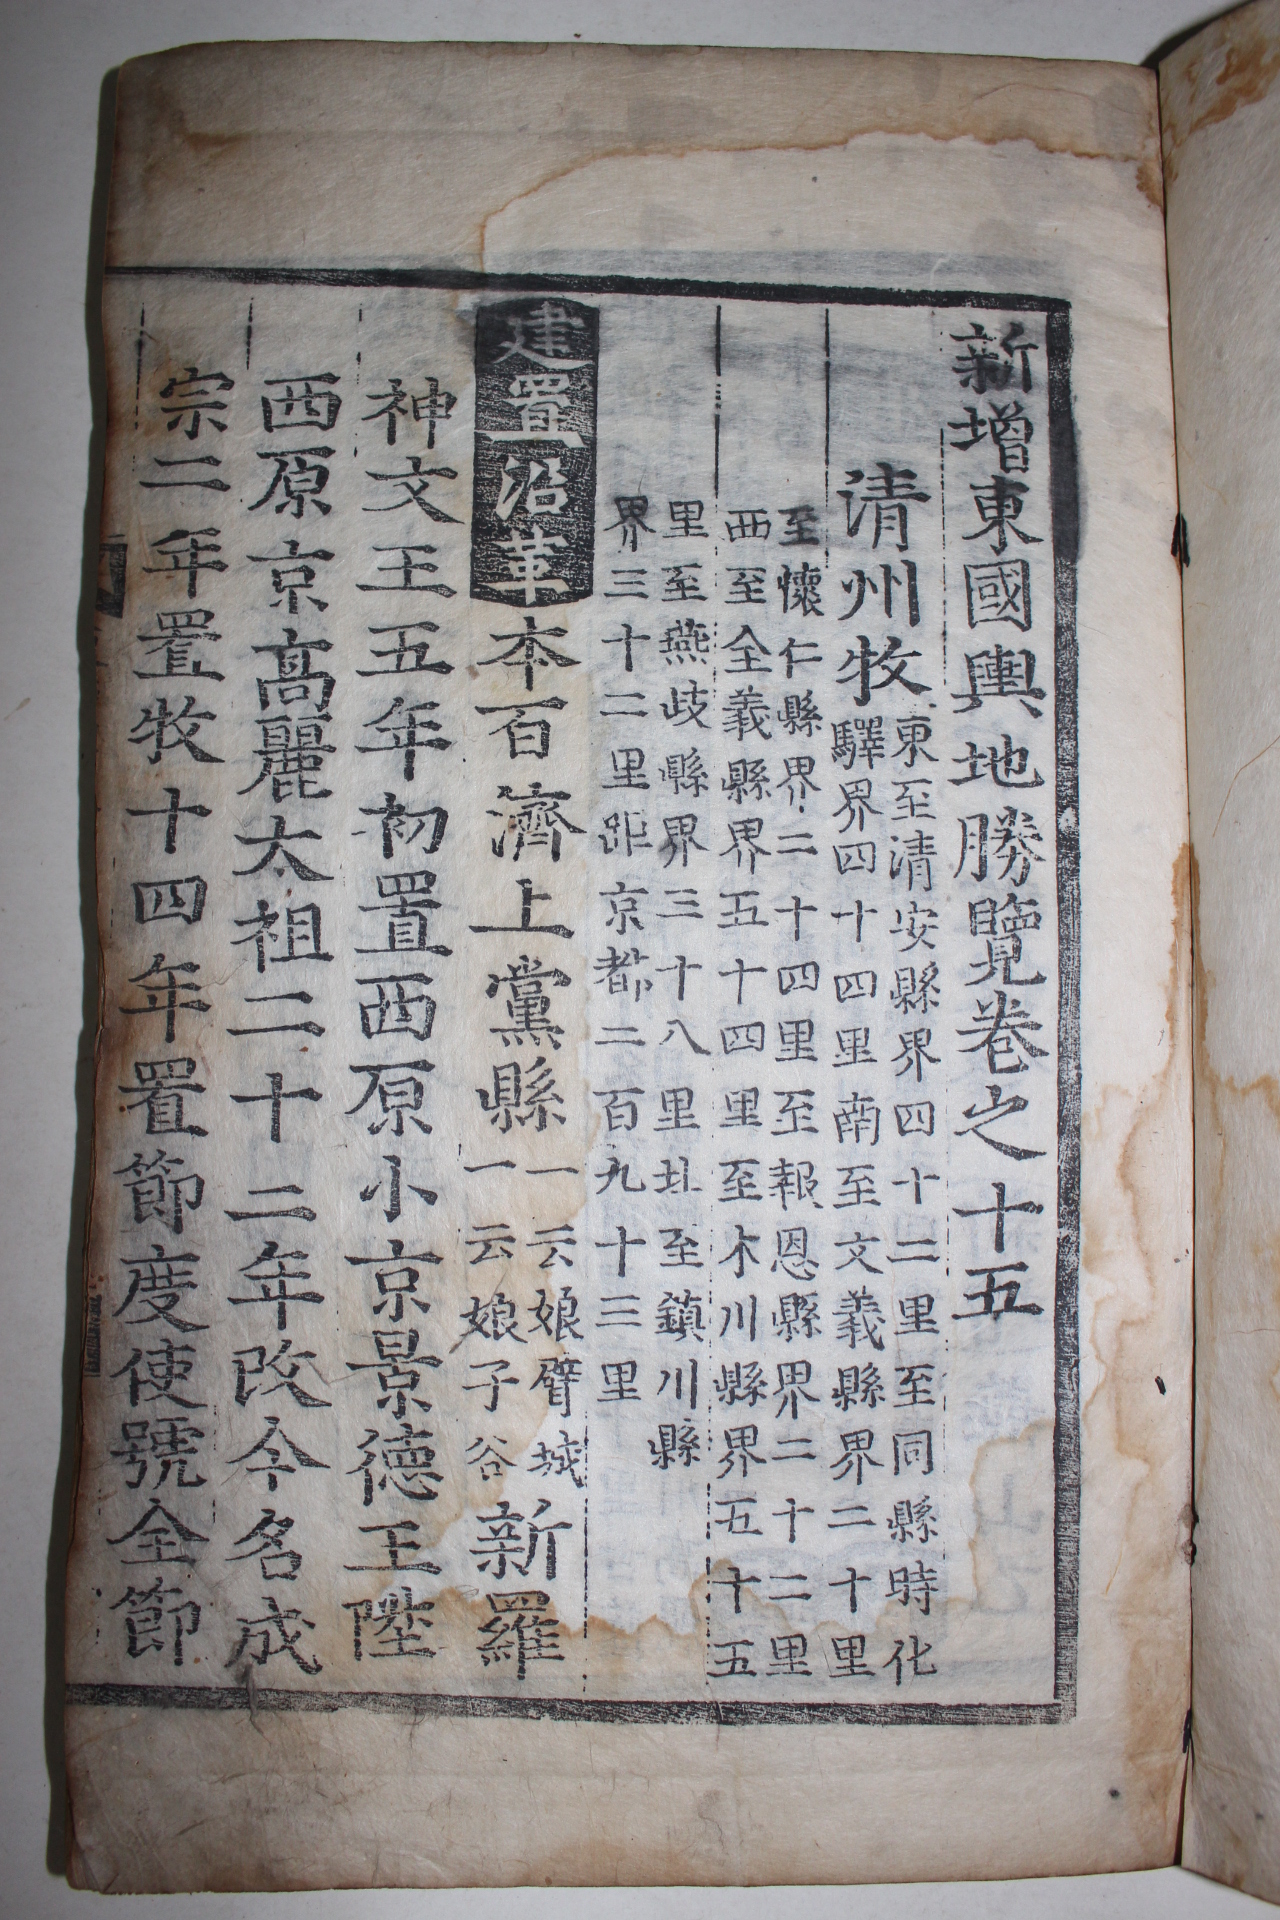 新增東國輿地勝覽卷之十五
清州牧
東至清安縣界四十二里至同縣時化
驛界四十四里南至文義縣界二十里
至懷仁縣界二十四里至報恩縣界二十二里
西至全義縣界五十四里至木川縣界五十五
里至燕歧縣界三十八里北至鎮川縣
界三十二里距京都三百九十三里
建置沿革
本百濟上黨縣
一云娘臂城
一云娘子谷
新羅
神文王五年初置西原小京景德王陞
西原京高麗太祖二十二年改今名成
宗二年置牧十四年置節度使號全節